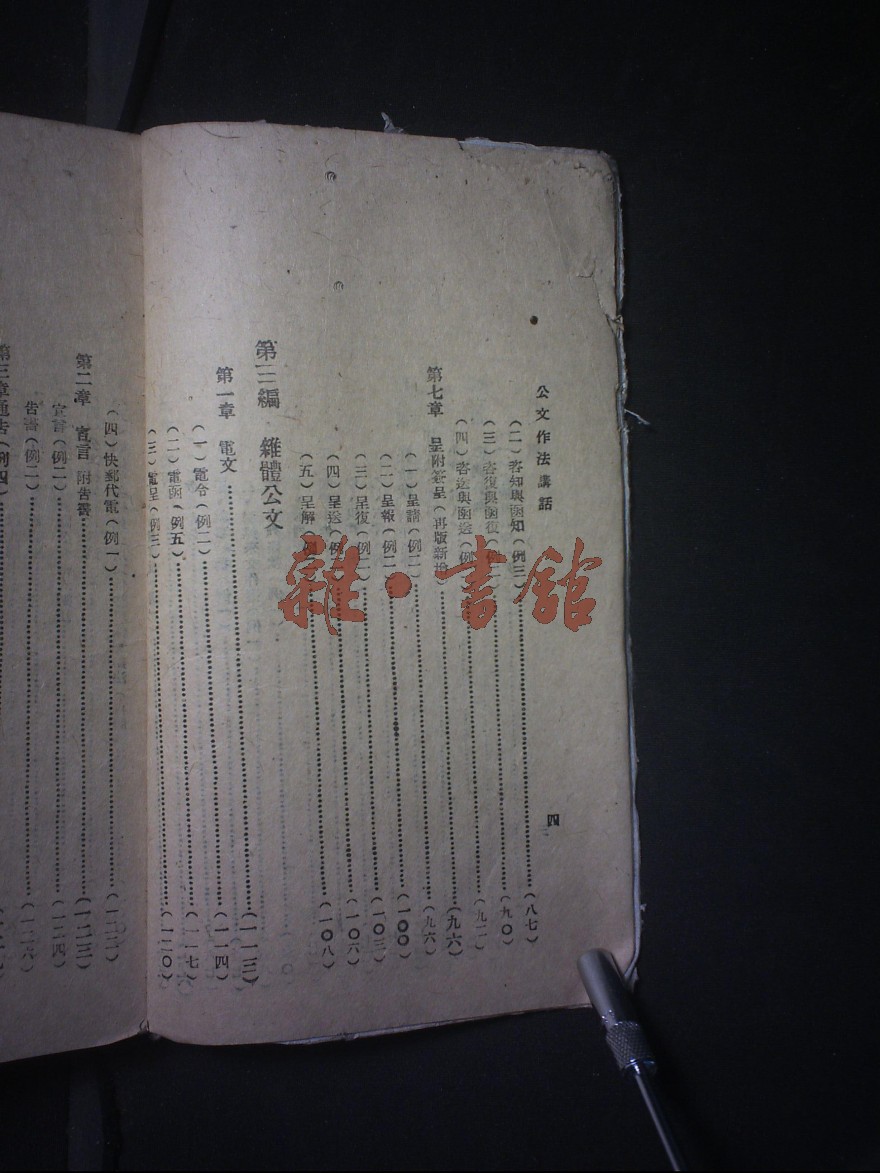 公文作法講話
四
（二）咨知與函知（例三）……（八七）
（三）咨復與函復（例……（九〇）
（四）咨送與函送（例……（九二）
第七章 呈附簽呈（再版新增）……（九六）
（一）呈請（例二）……（九六）
（二）呈報（例二）……（一〇〇）
（三）呈復（例二）……（一〇三）
（四）呈送（例……（一〇六）
（五）呈解（例……（一〇八）
第三編 雜體公文
第一章 電文……（一一三）
（一）電令（例二）……（一一四）
（二）電函（例五）……（一一七）
（三）電呈（例三）……（一二〇）
（四）快郵代電（例一）……（一二二）
第二章 宣言 附告書……（一二三）
宣言（例二）……（一二四）
告書（例二）……（一二六）
第三章通告（例四）……
雜·書館